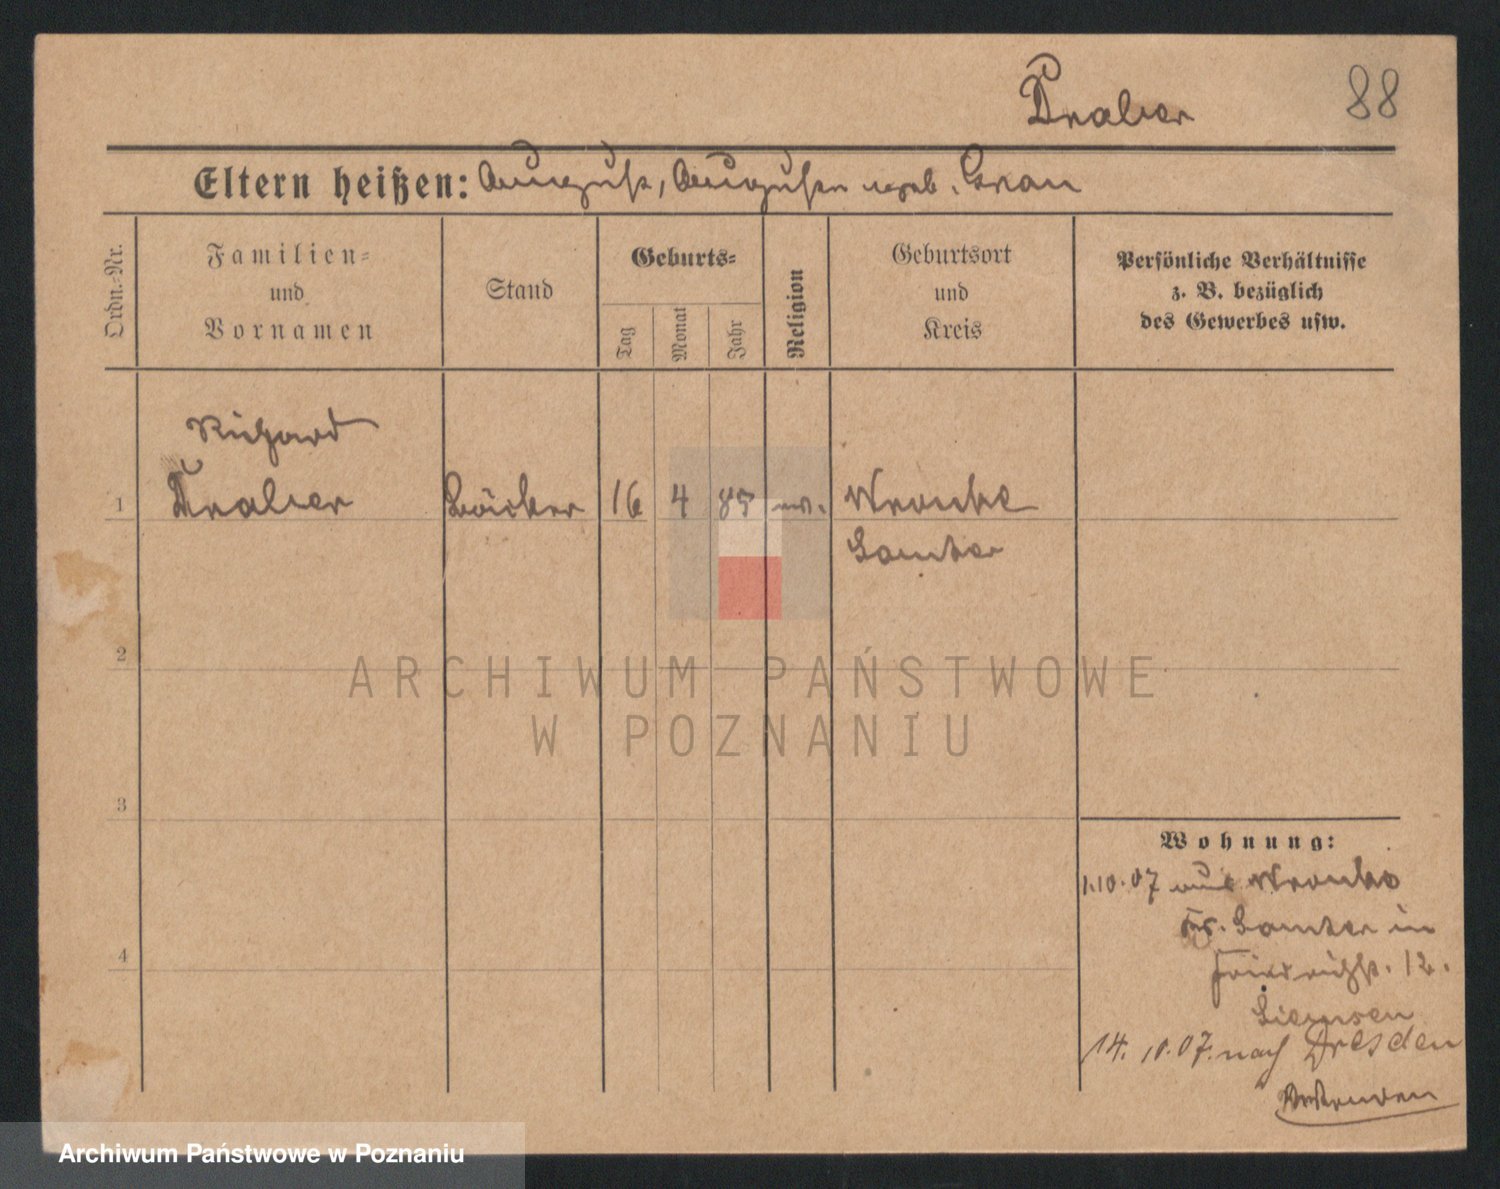 Draber
88
Eltern heißen: August, Auguste geb. Grau
Ordn.-Nr.
Familien-
und
Vornamen
Stand
Geburts-
Tag
Monat
Jahr
Religion
Geburtsort
und
Kreis
Persönliche Verhältnisse
z. B. bezüglich
des Gewerbes usw.
Richard
1 Draber Bäcker 16 4 85 ev. Wronke
Samter
2
3
4
Wohnung:
1.10.07 aus Wronke
Kr. Samter in
Friedrichst. 12.
Siemsen
14. 10.07. nach Dresden
ARCHIWUM PAŃSTWOWE
W POZNANIU
Archiwum Państwowe w Poznaniu